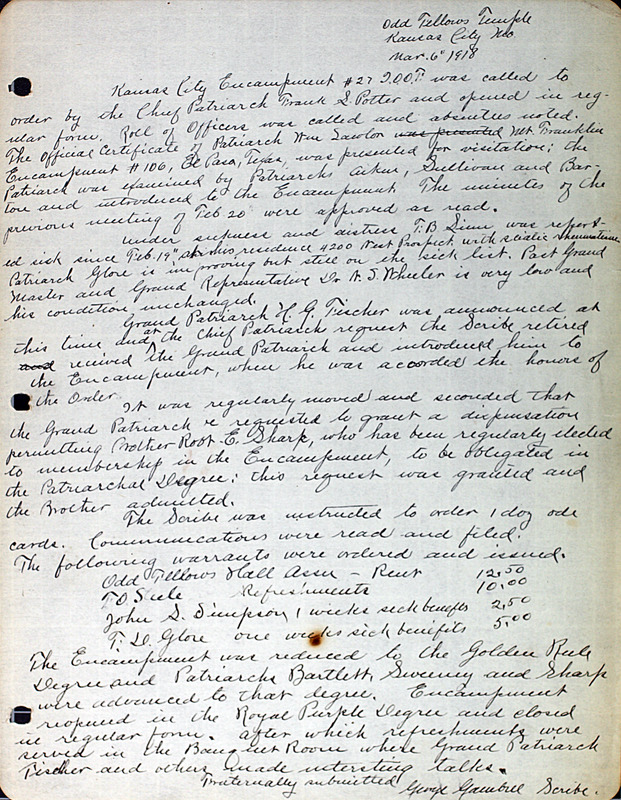 Odd Fellows Temple
Kansas City Mo
Mar. 6" 1918
Kansas City Encampment #27 I.O.O.F. was called to
order by the Chief Patriarch Frank S. Potter and opened in reg-
ular form. Roll of Officers was called and absentees noted.
The Official Certificate of Patriarch Wm Lawlor was presented Mt. Franklin
Encampment #106, El Paso, Texas, was presented for visitation; the
Patriarch was examined by Patriarchs , Sullivan and Bar-
ton and introduced to the Encampment. The minutes of the
previous meeting of Feb 20" were approved as read.
Under sickness and distress T. B. Linn was report-
ed sick since Feb. 19" at his residence 4200 West Prospect with sciatic rheumatism
Patriarch Glore is improving but still on the sick list. Past Grand
Master and Grand Representative Dr W. S. Wheeler is very low and
his condition unchanged.
Grand Patriarch H. G. Fischer was announced at
this time and at the Chief Patriarch request the Scribe retired
and received the Grand Patriarch and introduced him to
the Encampment, when he was accorded the honors of
the Order.
It was regularly moved and seconded that
the Grand Patriarch e requested to grant a dispensation
permitting Brother Robt. E. Sharp, who has been regularly elected
to membership in the Encampment, to be obligated in
the Patriarchal Degree; this request was granted and
the Brother admitted.
The Scribe was instructed to order 1 doz ode
cards. Communications were read and filed.
The following warrants were ordered and issued.
Odd Fellows Hall Assn - Rent 12.50
T O Refreshments 10.00
John S. Simpson 1 weeks sick benefits 2.50
T. D. Glore one weeks sick benifits 5.00
The Encampment was reduced to the Golden Rule
Degree and Patriarchs Bartlett, Sweeney and Sharp
were advanced to that degree. Encampment
reopened in the Royal Purple Degree and closed
in regular form. After which refreshments were
served in the Banquet Room where Grand Patriarch
Fischer and others made intersting talks.
Fraternally submitted
George Gambrel Scribe.